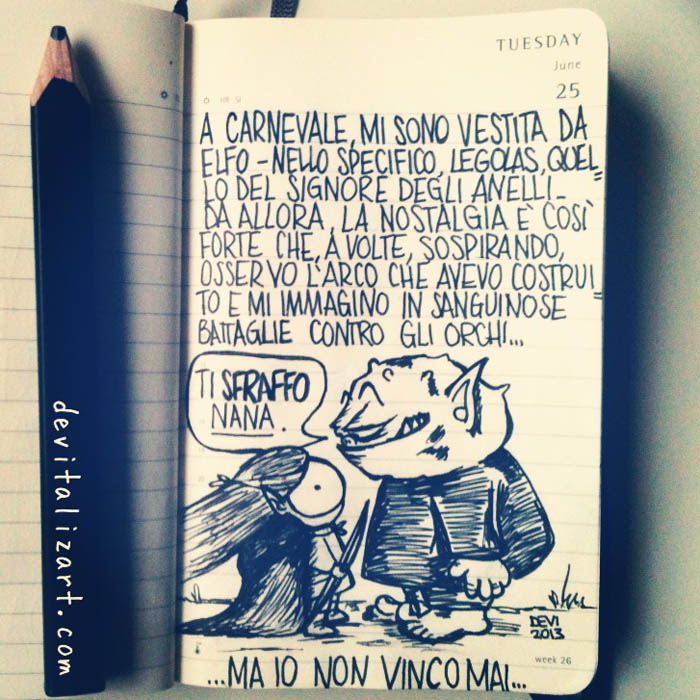 TUESDAY
June
25
A CARNEVALE, MI SONO VESTITA DA
ELFO - NELLO SPECIFICO, LEGOLAS, QUEL=
LO DEL SIGNORE DEGLI ANELLI_
DA ALLORA, LA NOSTALGIA È COSÌ
FORTE CHE, A VOLTE, SOSPIRANDO,
OSSERVO L'ARCO CHE AVEVO COSTRUI=
TO E MI IMMAGINO IN SANGUINOSE
BATTAGLIE CONTRO GLI ORCHI...
TI SFRAFFO
NANA.
DEVI
2013
week 26
...MA IO NON VINCO MAI...
devitalizart.com